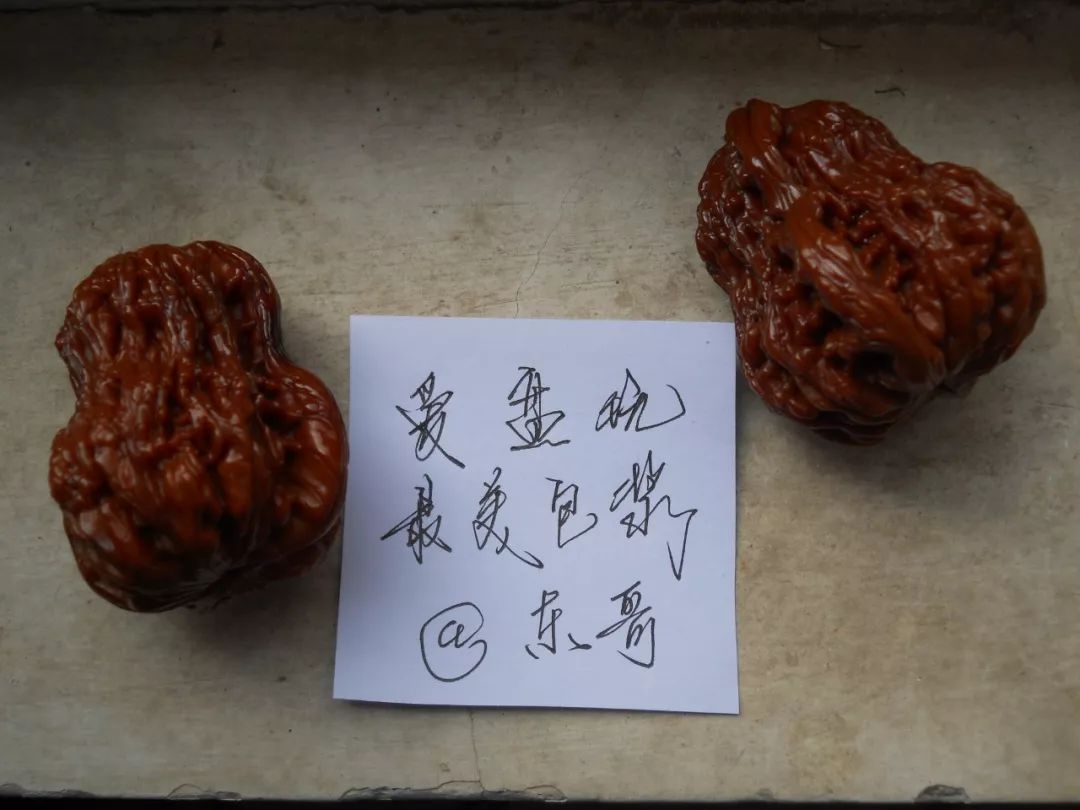 爱盘玩
最美包浆
@东哥